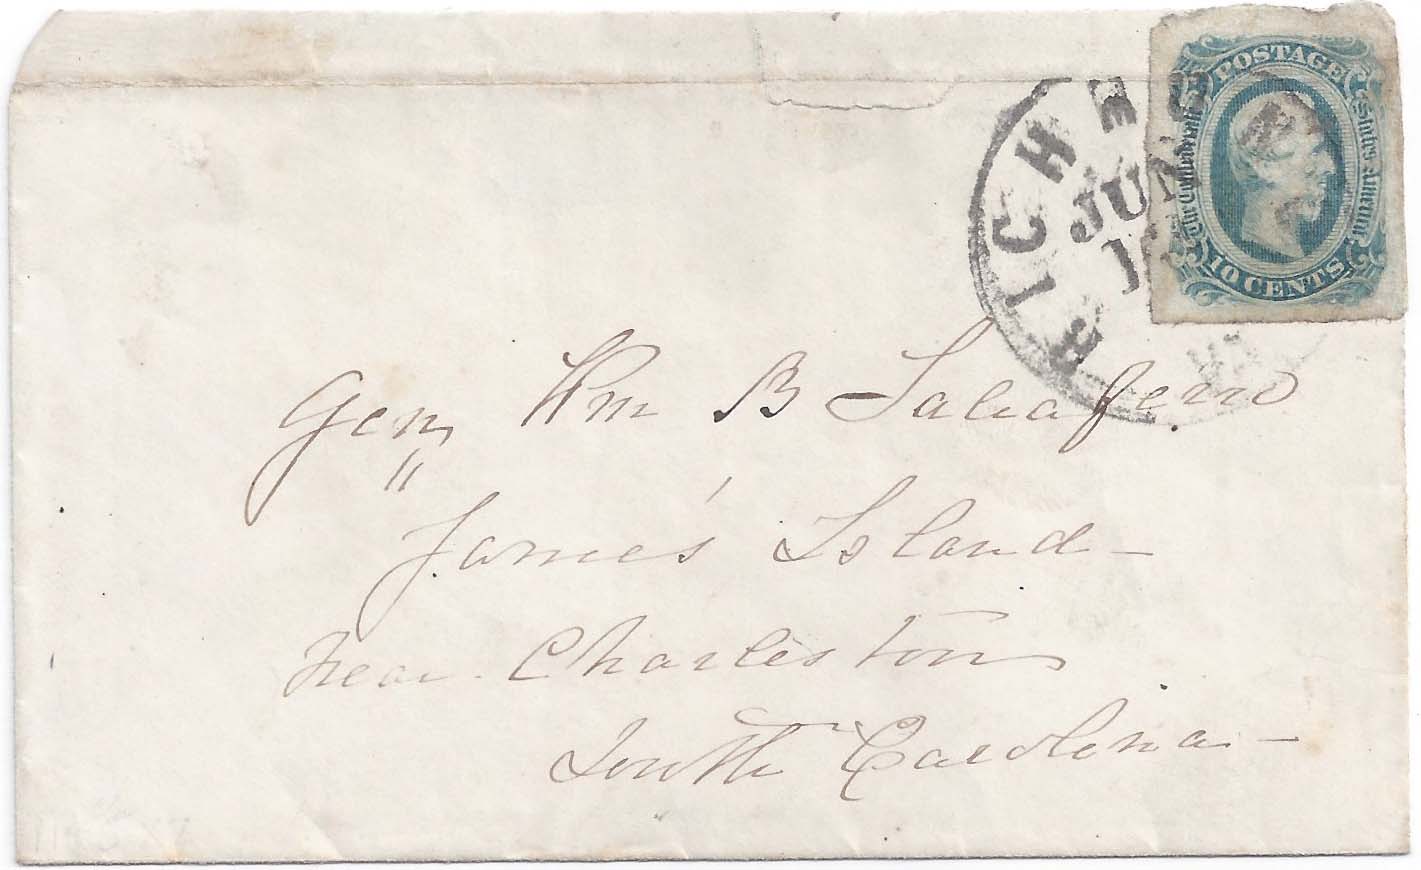 POSTAGE
The Confederate States America
10 CENTS
RICHMOND
JUN
VA
Gen Wm B Taliaferro
James' Island -
Near Charleston
South Carolina -